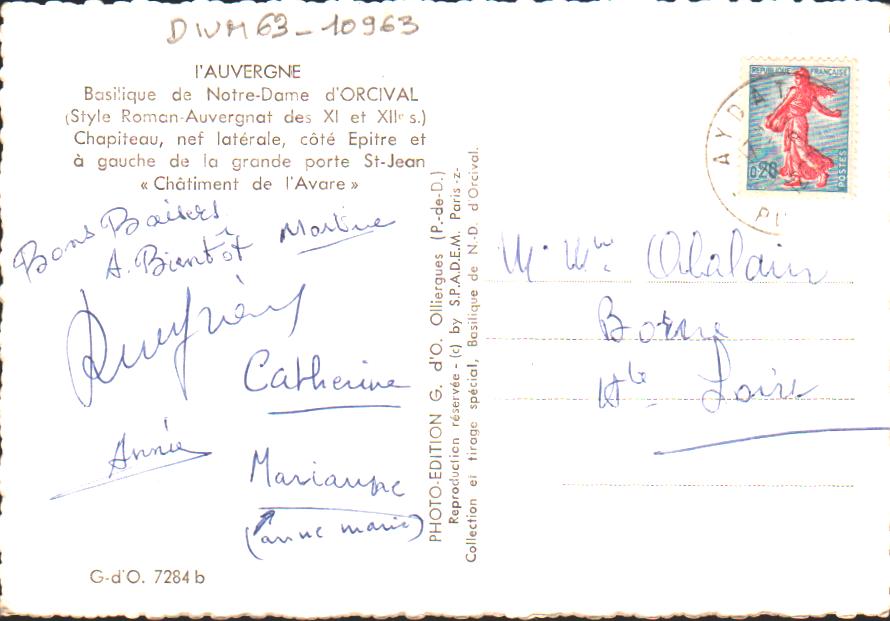 DIVM63-10963
l'AUVERGNE
Basilique de Notre-Dame d'ORCIVAL
(Style Roman-Auvergnat des XI et XIIe s.)
Chapiteau, nef latérale, côté Epitre et
à gauche de la grande porte St-Jean
« Châtiment de l'Avare »
Bons Baisers
A Bientôt Martine
Catherine
Année
Marianne
(anne marie)
G-d'O. 7284 b
PHOTO-EDITION G. d'O. Olliergues (P.-de-D.)
Reproduction réservée - (c) by S.P.A.D.E.M. Paris-z-
Collection et tirage spécial, Basilique de N.-D. d'Orcival.
REPUBLIQUE FRANÇAISE
0,20
POSTES
AYDAT
PU
M. Mme
Borne
Hte Loire